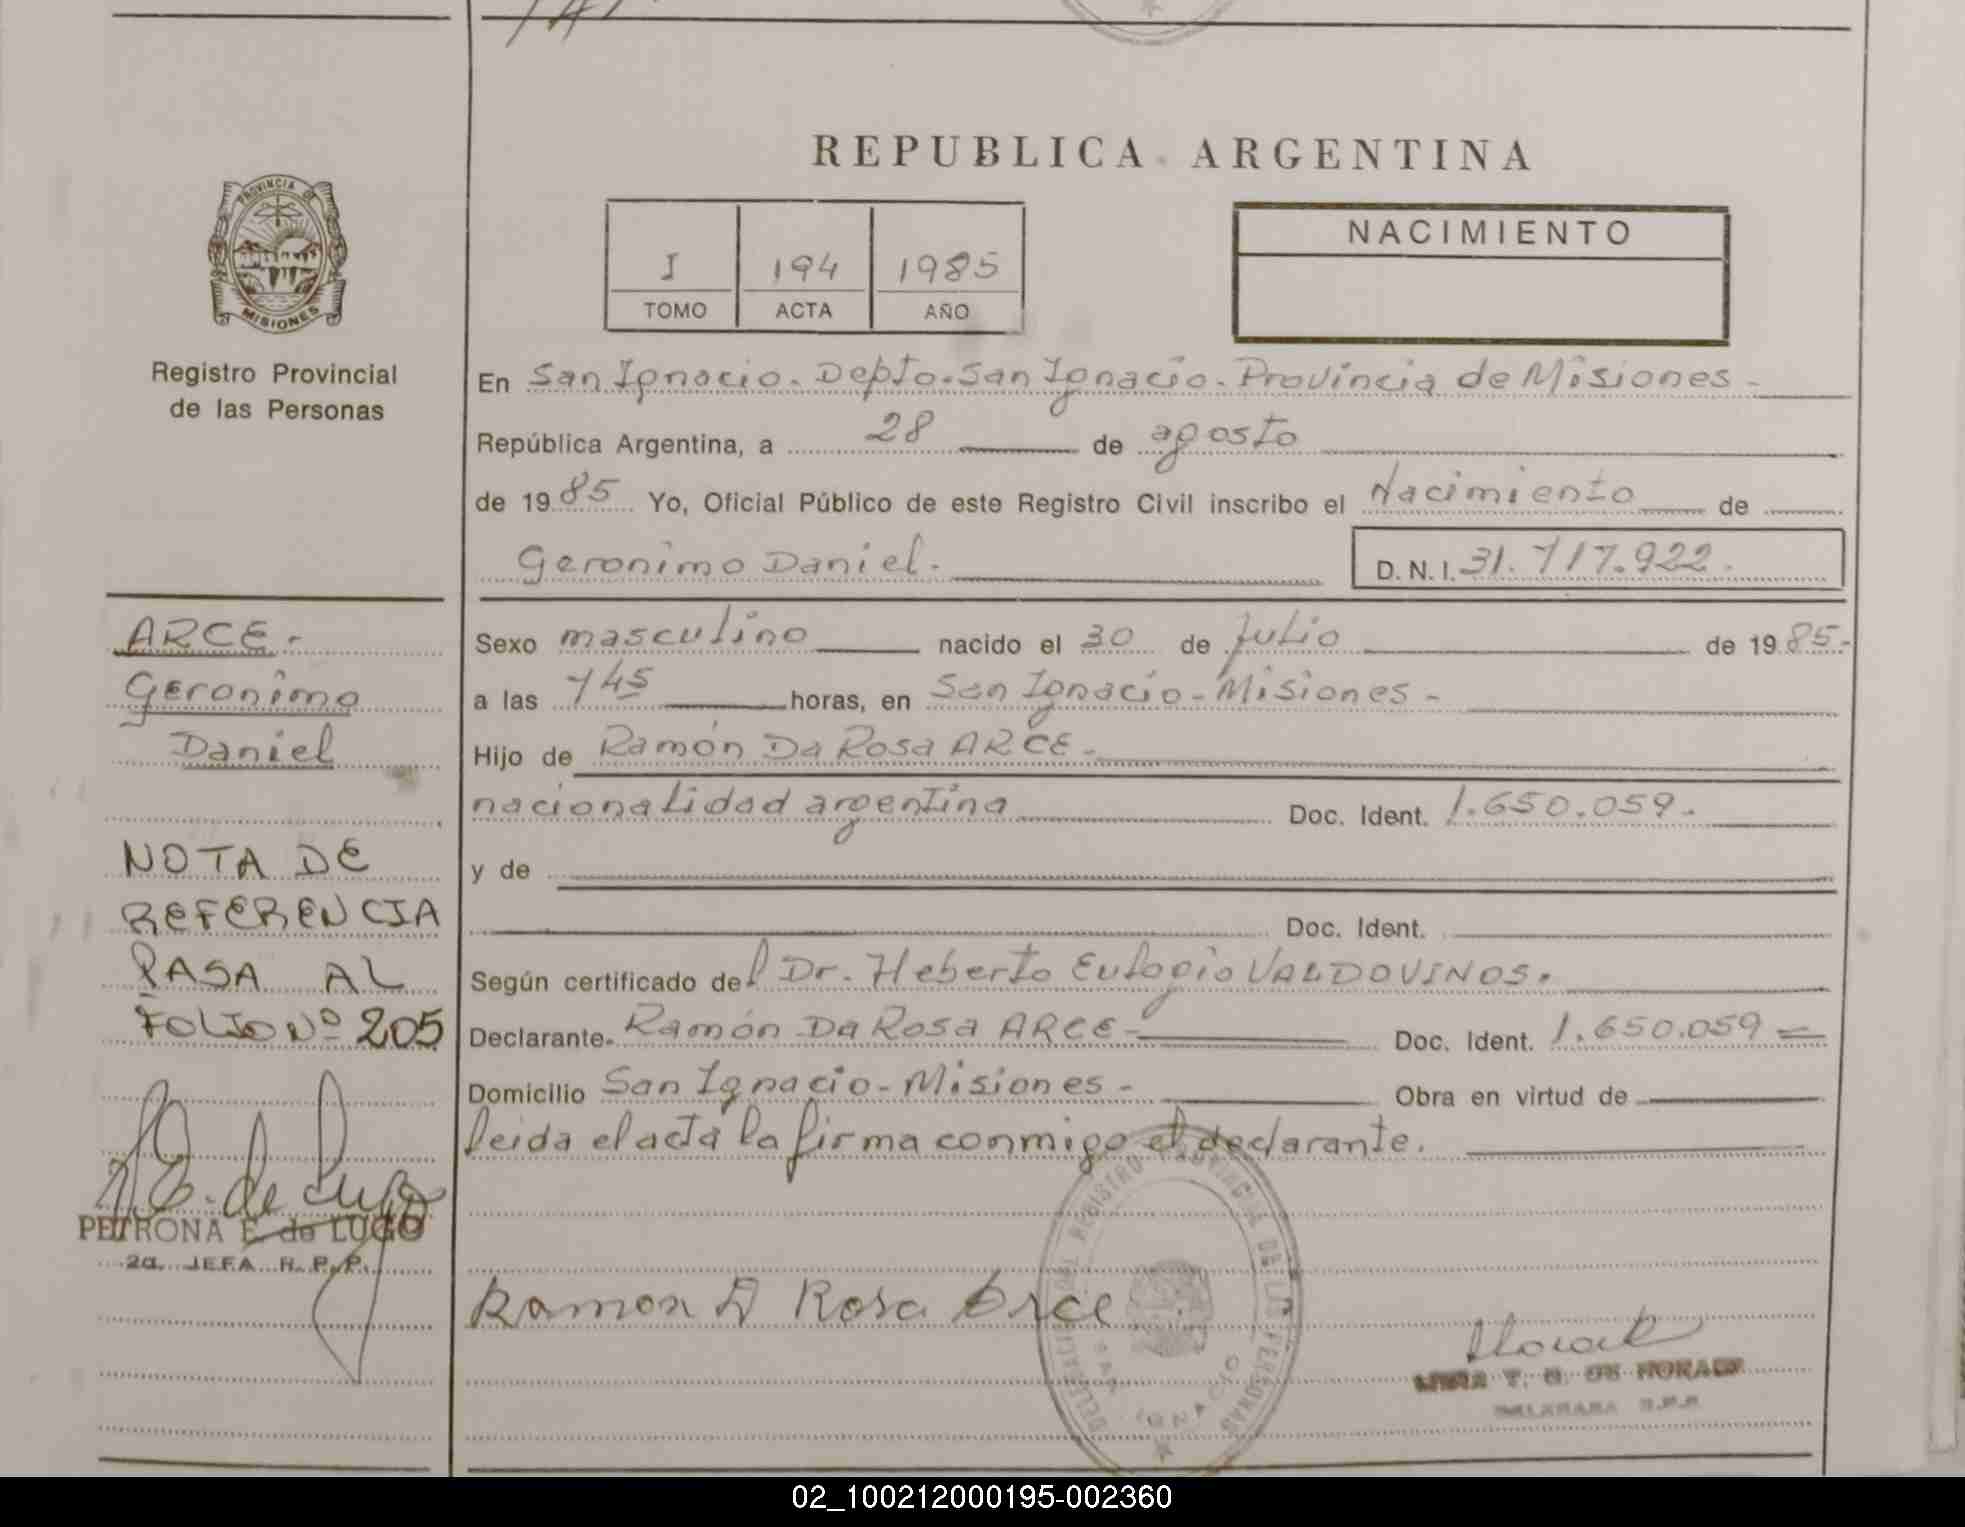 REPUBLICA ARGENTINA
PROVINCIA DE
MISIONES
Registro Provincial
de las Personas
I 194 1985
TOMO ACTA AÑO
NACIMIENTO
En San Ignacio. Depto. San Ignacio. Provincia de Misiones -
República Argentina, a 28 de agosto
de 1985 Yo, Oficial Público de este Registro Civil inscribo el Nacimiento de
Geronimo Daniel. D.N.I. 31.717.922.
ARCE.
Geronimo
Daniel
NOTA DE
REFERENCIA
PASA AL
FOLIO Nº 205
PETRONA E. de LUGO
2a. JEFA R. P. P.
Sexo masculino nacido el 30 de Julio de 1985-
a las 745 horas, en San Ignacio - Misiones -
Hijo de Ramón Da Rosa ARCE-
nacionalidad argentina Doc. Ident. 1.650.059-
y de
Doc. Ident.
Según certificado del Dr. Heberto Eulogio VALDOVINOS.
Declarante. Ramón Da Rosa ARCE- Doc. Ident. 1.650.059 =
Domicilio San Ignacio - Misiones - Obra en virtud de
leida el acta la firma conmigo el declarante.
Ramon D Rosa Arce
DELEGACION DEL REGISTRO PROVINCIAL DE LAS PERSONAS
SAN IGNACIO
02_100212000195-002360